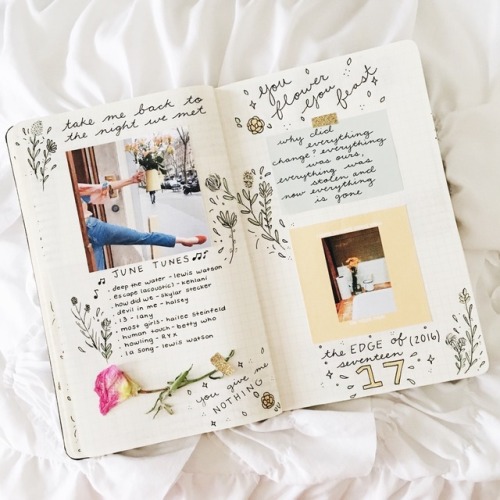 take me back to
the night we met
JUNE TUNES
deep the water - lewis watson
escape (acoustic) - kehlani
how did we - skylar stecker
devil in me - halsey
13 - lany
most girls - hailee steinfeld
human touch - betty who
howling - RYX
la song - lewis watson
you give me
NOTHING
you
flower
you feast
why did
everything
change? everything
was ours.
everything was
stolen and
now everything
is gone
the EDGE of (2016)
seventeen
17